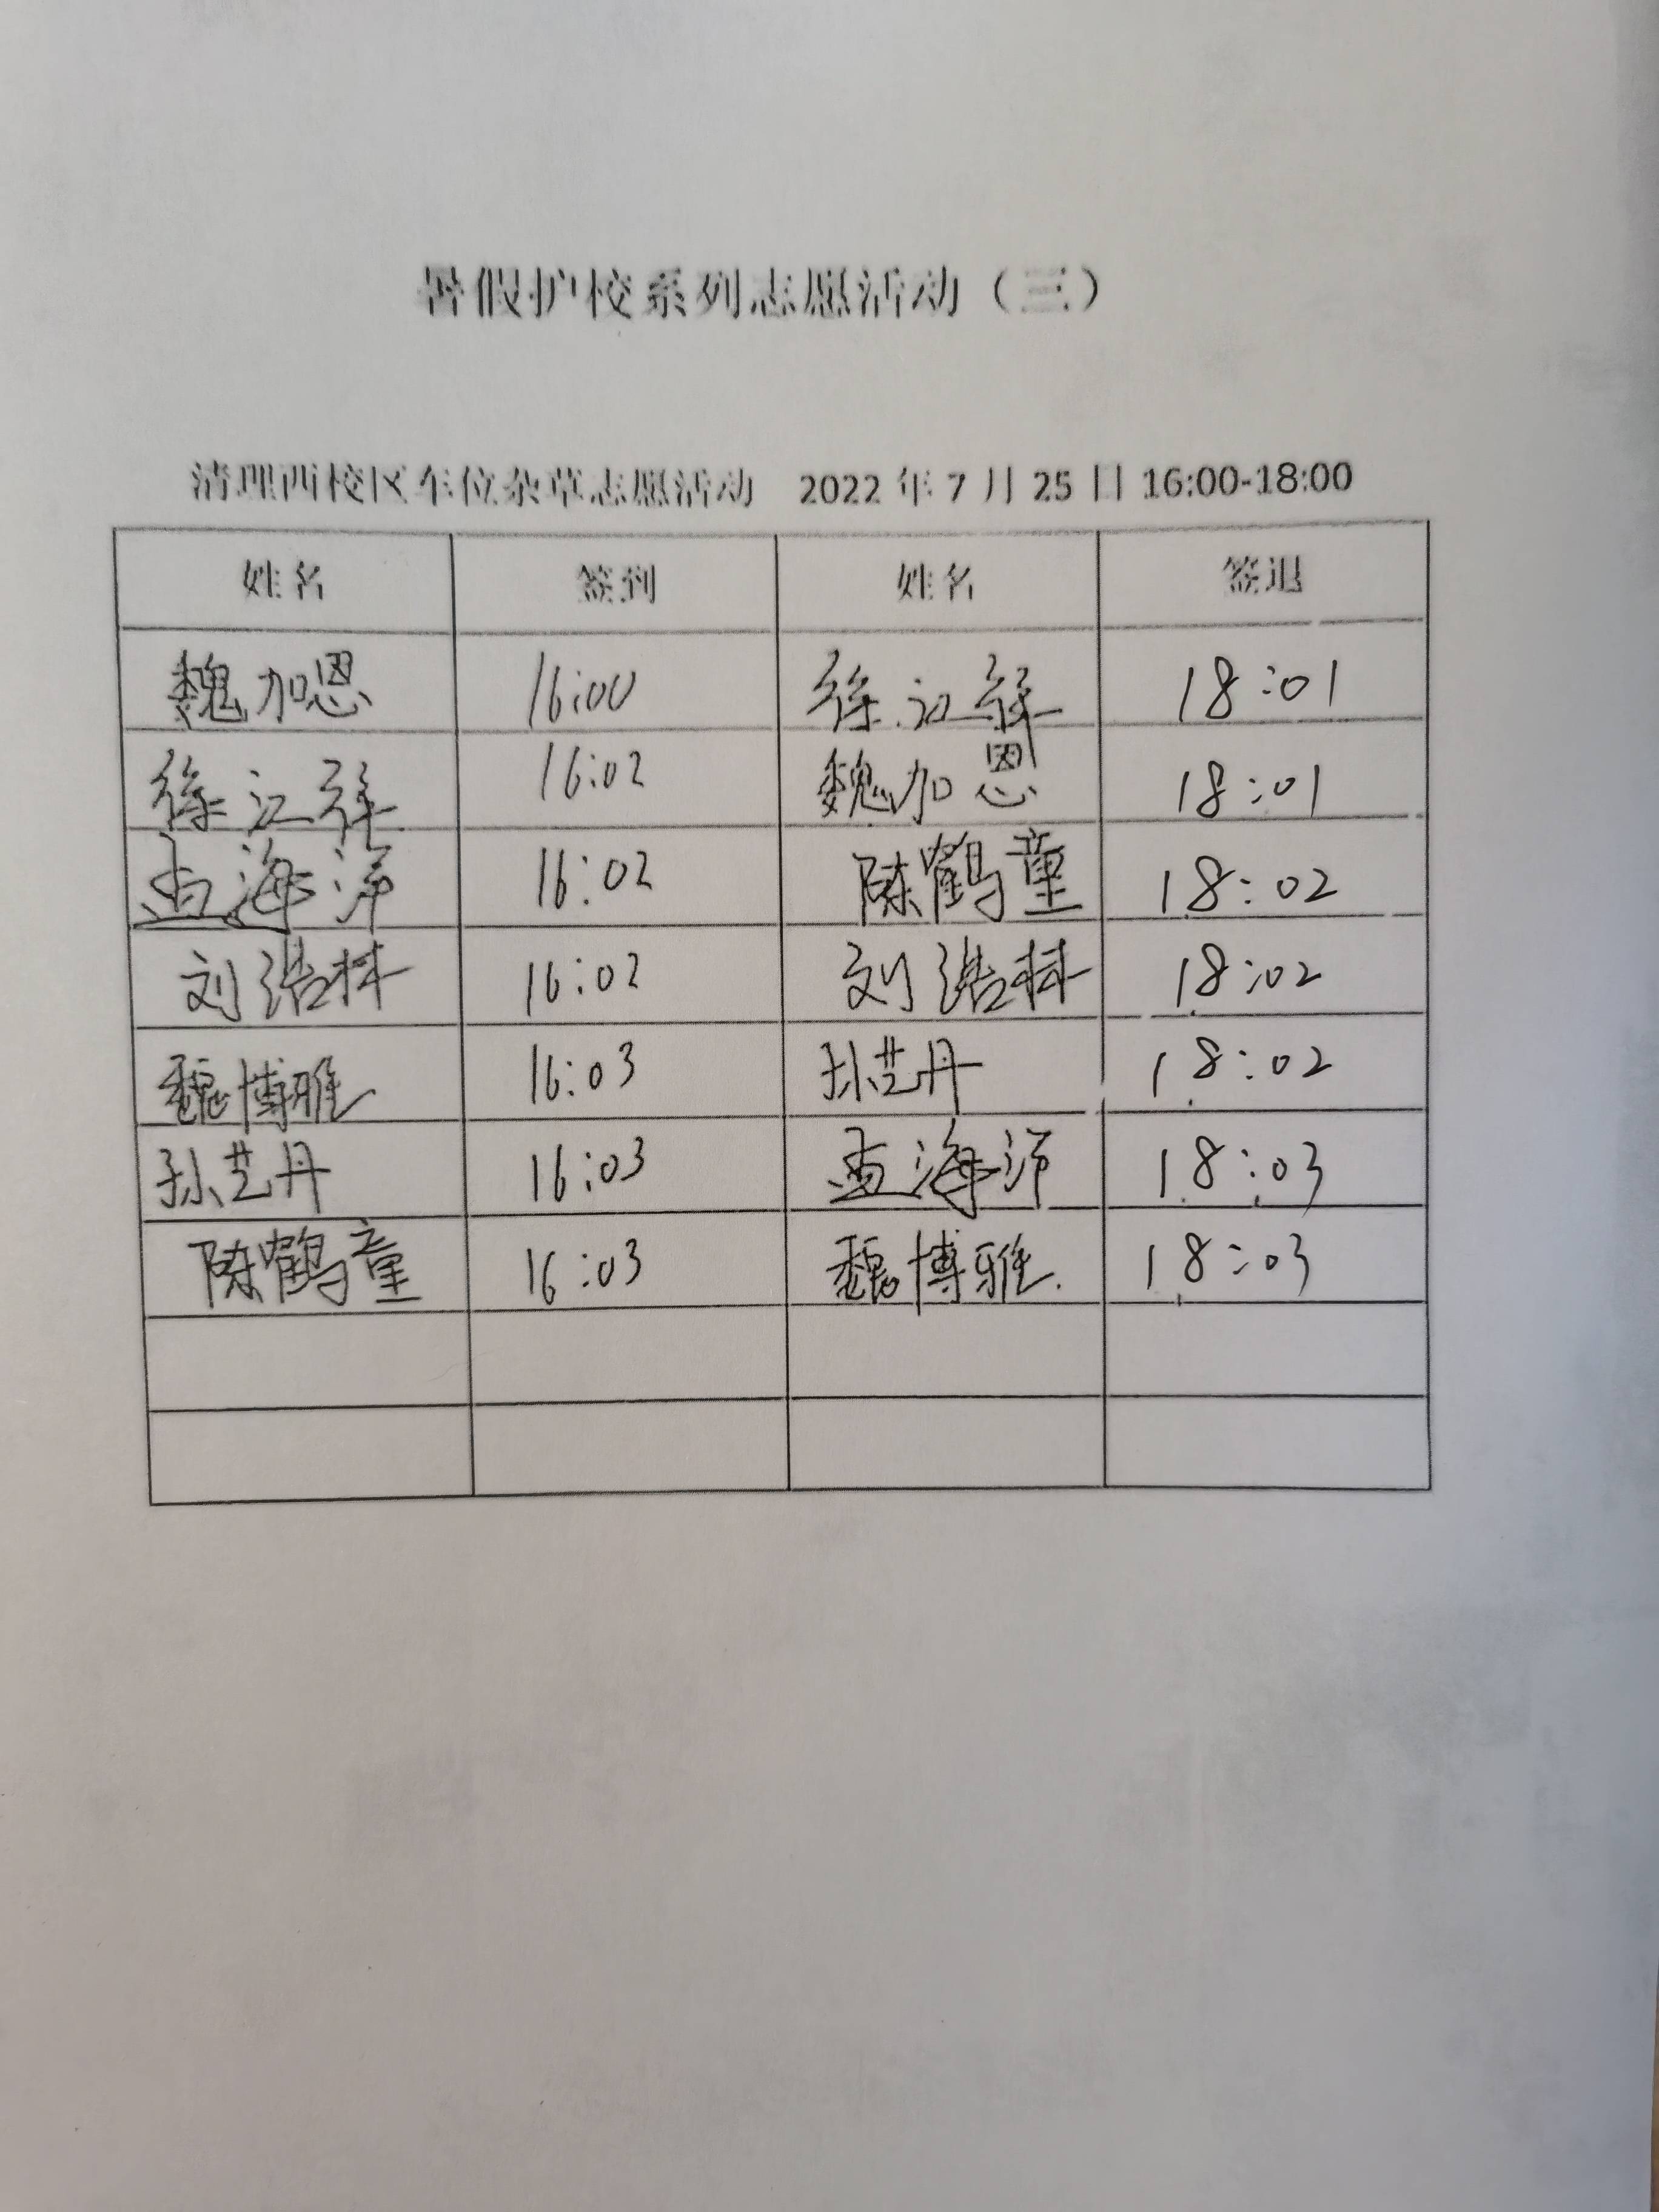 暑假护校系列志愿活动（三）
清理西校区车位杂草志愿活动 2022 年 7 月 25 日 16:00-18:00
姓名 签到 姓名 签退
魏加恩 16:00 徐江 18:01
徐江 16:02 魏加恩 18:01
海洋 16:02 陈鹤童 18:02
刘浩 16:02 刘浩 18:02
魏博雅 16:03 孙艺丹 18:02
孙艺丹 16:03 海洋 18:03
陈鹤童 16:03 魏博雅. 18:03